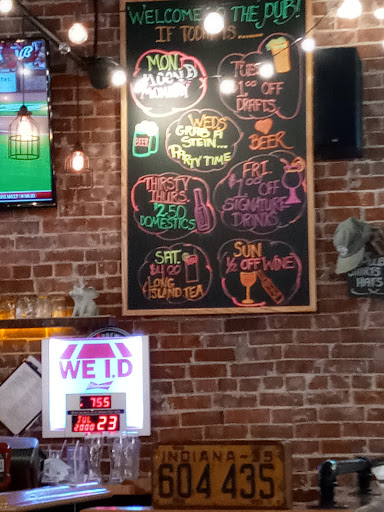 WELCOME TO THE PUB!
IF TODAY IS......
MON.
MONDAY
TUES
$1.00 OFF
DRAFTS.
WEDS
GRAB A
STEIN...
PARTY TIME
BEER
BEER
THIRSTY
THURS.
$2.50
DOMESTICS
FRI
$1.00 OFF
SIGNATURE
DRINKS.
SAT.
$4.00
LONG
ISLAND TEA
SUN
½ OFF WINE
HATS
WE I.D
755
JUL
2000 23
INDIANA-35
604 435